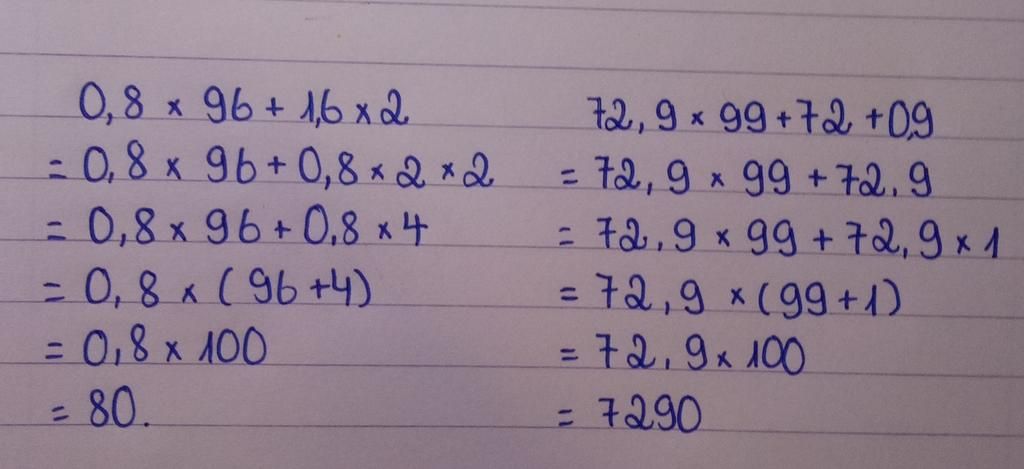 0,8 × 96 + 1,6 × 2
= 0,8 × 96 + 0,8 × 2 × 2
= 0,8 × 96 + 0,8 × 4
= 0,8 × (96 + 4)
= 0,8 × 100
= 80.
72,9 × 99 + 72 + 0,9
= 72,9 × 99 + 72,9
= 72,9 × 99 + 72,9 × 1
= 72,9 × (99 + 1)
= 72,9 × 100
= 7290